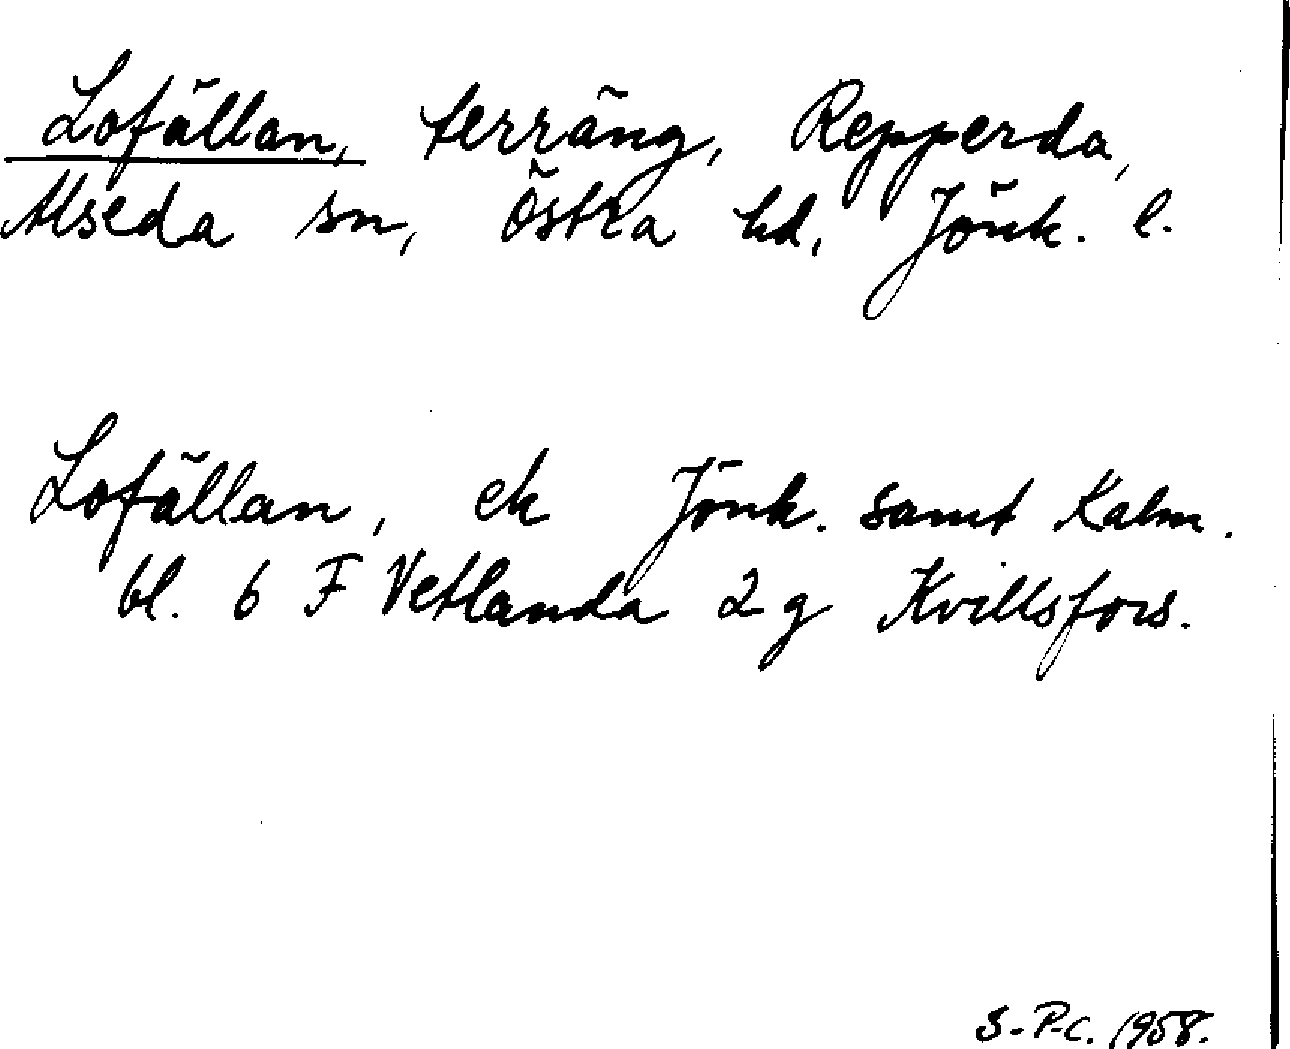 Lofällan, terräng, Repperda,
Alseda sn, Östra hd, Jönk. l.
Lofällan, ek Jönk. samt Kalm.
bl. 6 F Vetlanda 2 g Kvillsfors.
S-P-C. 1958.